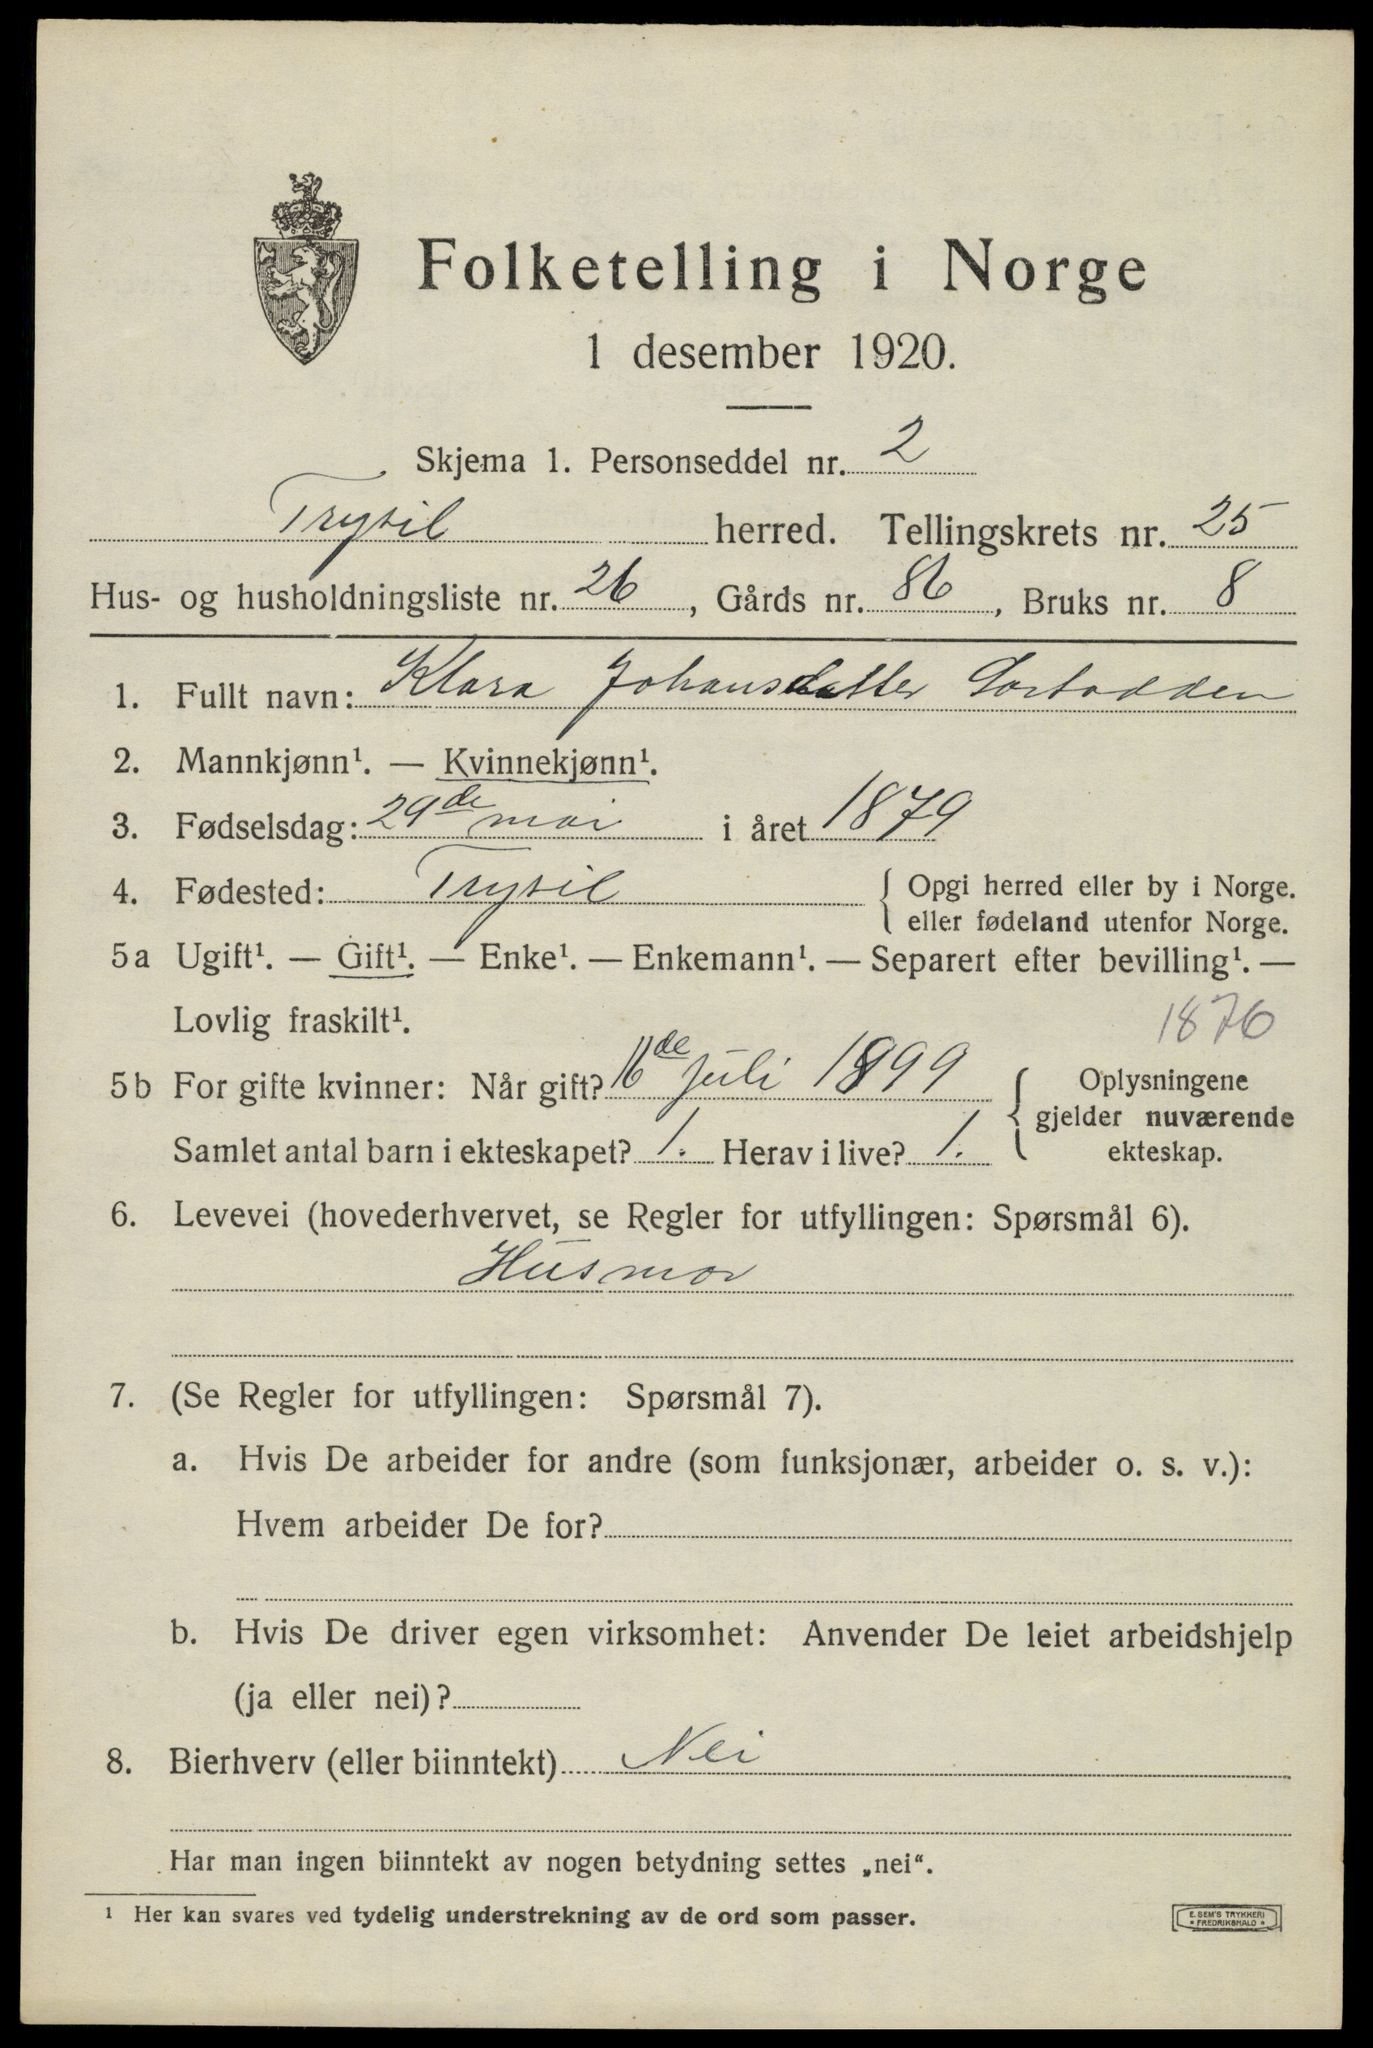 Folketelling i Norge
1 desember 1920.
Skjema 1. Personseddel nr. 2
Trysil herred. Tellingskrets nr. 25
Hus- og husholdningsliste nr. 26, Gårds nr. 86, Bruks nr. 8
1. Fullt navn: Klara Johansdatter
2. Mannkjønn¹. — Kvinnekjønn¹.
3. Fødselsdag: 29de mai i året 1879
4. Fødested: Trysil { Opgi herred eller by i Norge.
eller fødeland utenfor Norge.
5a Ugift¹. — Gift¹. — Enke¹. — Enkemann¹. — Separert efter bevilling¹. —
Lovlig fraskilt¹. 1876
5b For gifte kvinner: Når gift? 16de juli 1899 { Oplysningene
gjelder nuværende
Samlet antal barn i ekteskapet? 1. Herav i live? 1. ekteskap.
6. Levevei (hovederhvervet, se Regler for utfyllingen: Spørsmål 6).
Husmor
7. (Se Regler for utfyllingen: Spørsmål 7).
a. Hvis De arbeider for andre (som funksjonær, arbeider o. s. v.):
Hvem arbeider De for?
b. Hvis De driver egen virksomhet: Anvender De leiet arbeidshjelp
(ja eller nei)?
8. Bierhverv (eller biinntekt) Nei
Har man ingen biinntekt av nogen betydning settes „nei“.
¹ Her kan svares ved tydelig understrekning av de ord som passer.
E. SEM'S TRYKKERI
* FREDRIKSHALD *